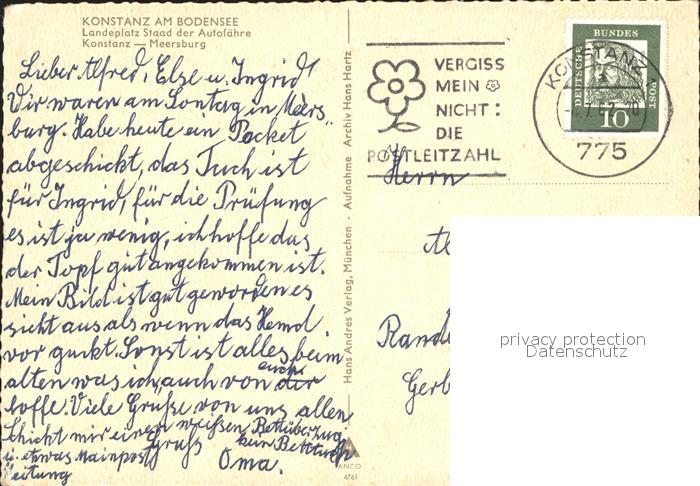 KONSTANZ AM BODENSEE
Landeplatz Staad der Autofähre
Konstanz — Meersburg
Lieber Alfred, Else u. Ingrid!
Wir waren am Sontag in Meers-
burg. Habe heute ein Packet
abgeschickt, das Tuch ist
für Ingrid, für die Prüfung
es ist ja wenig, ich hoffe das
der Topf gut angekommen ist.
Mein Bild ist gut geworden es
sieht aus als wenn das Hemd
vor guckt. Sonst ist alles beim
alten was ich auch von euch
hoffe. Viele Grüße von uns allen
Schickt mir einen weißen Bettüberzug
u. etwas Mainpost Gruß kein Bettuch
Zeitung Oma.
Hans Andres Verlag, München - Aufnahme Archiv Hans Hartz
ANCO
4761
VERGISS
MEIN
NICHT:
DIE
POSTLEITZAHL
KONSTANZ
775
DEUTSCHE BUNDESPOST
10
Herrn
Al
Rande
Gerb
privacy protection
Datenschutz